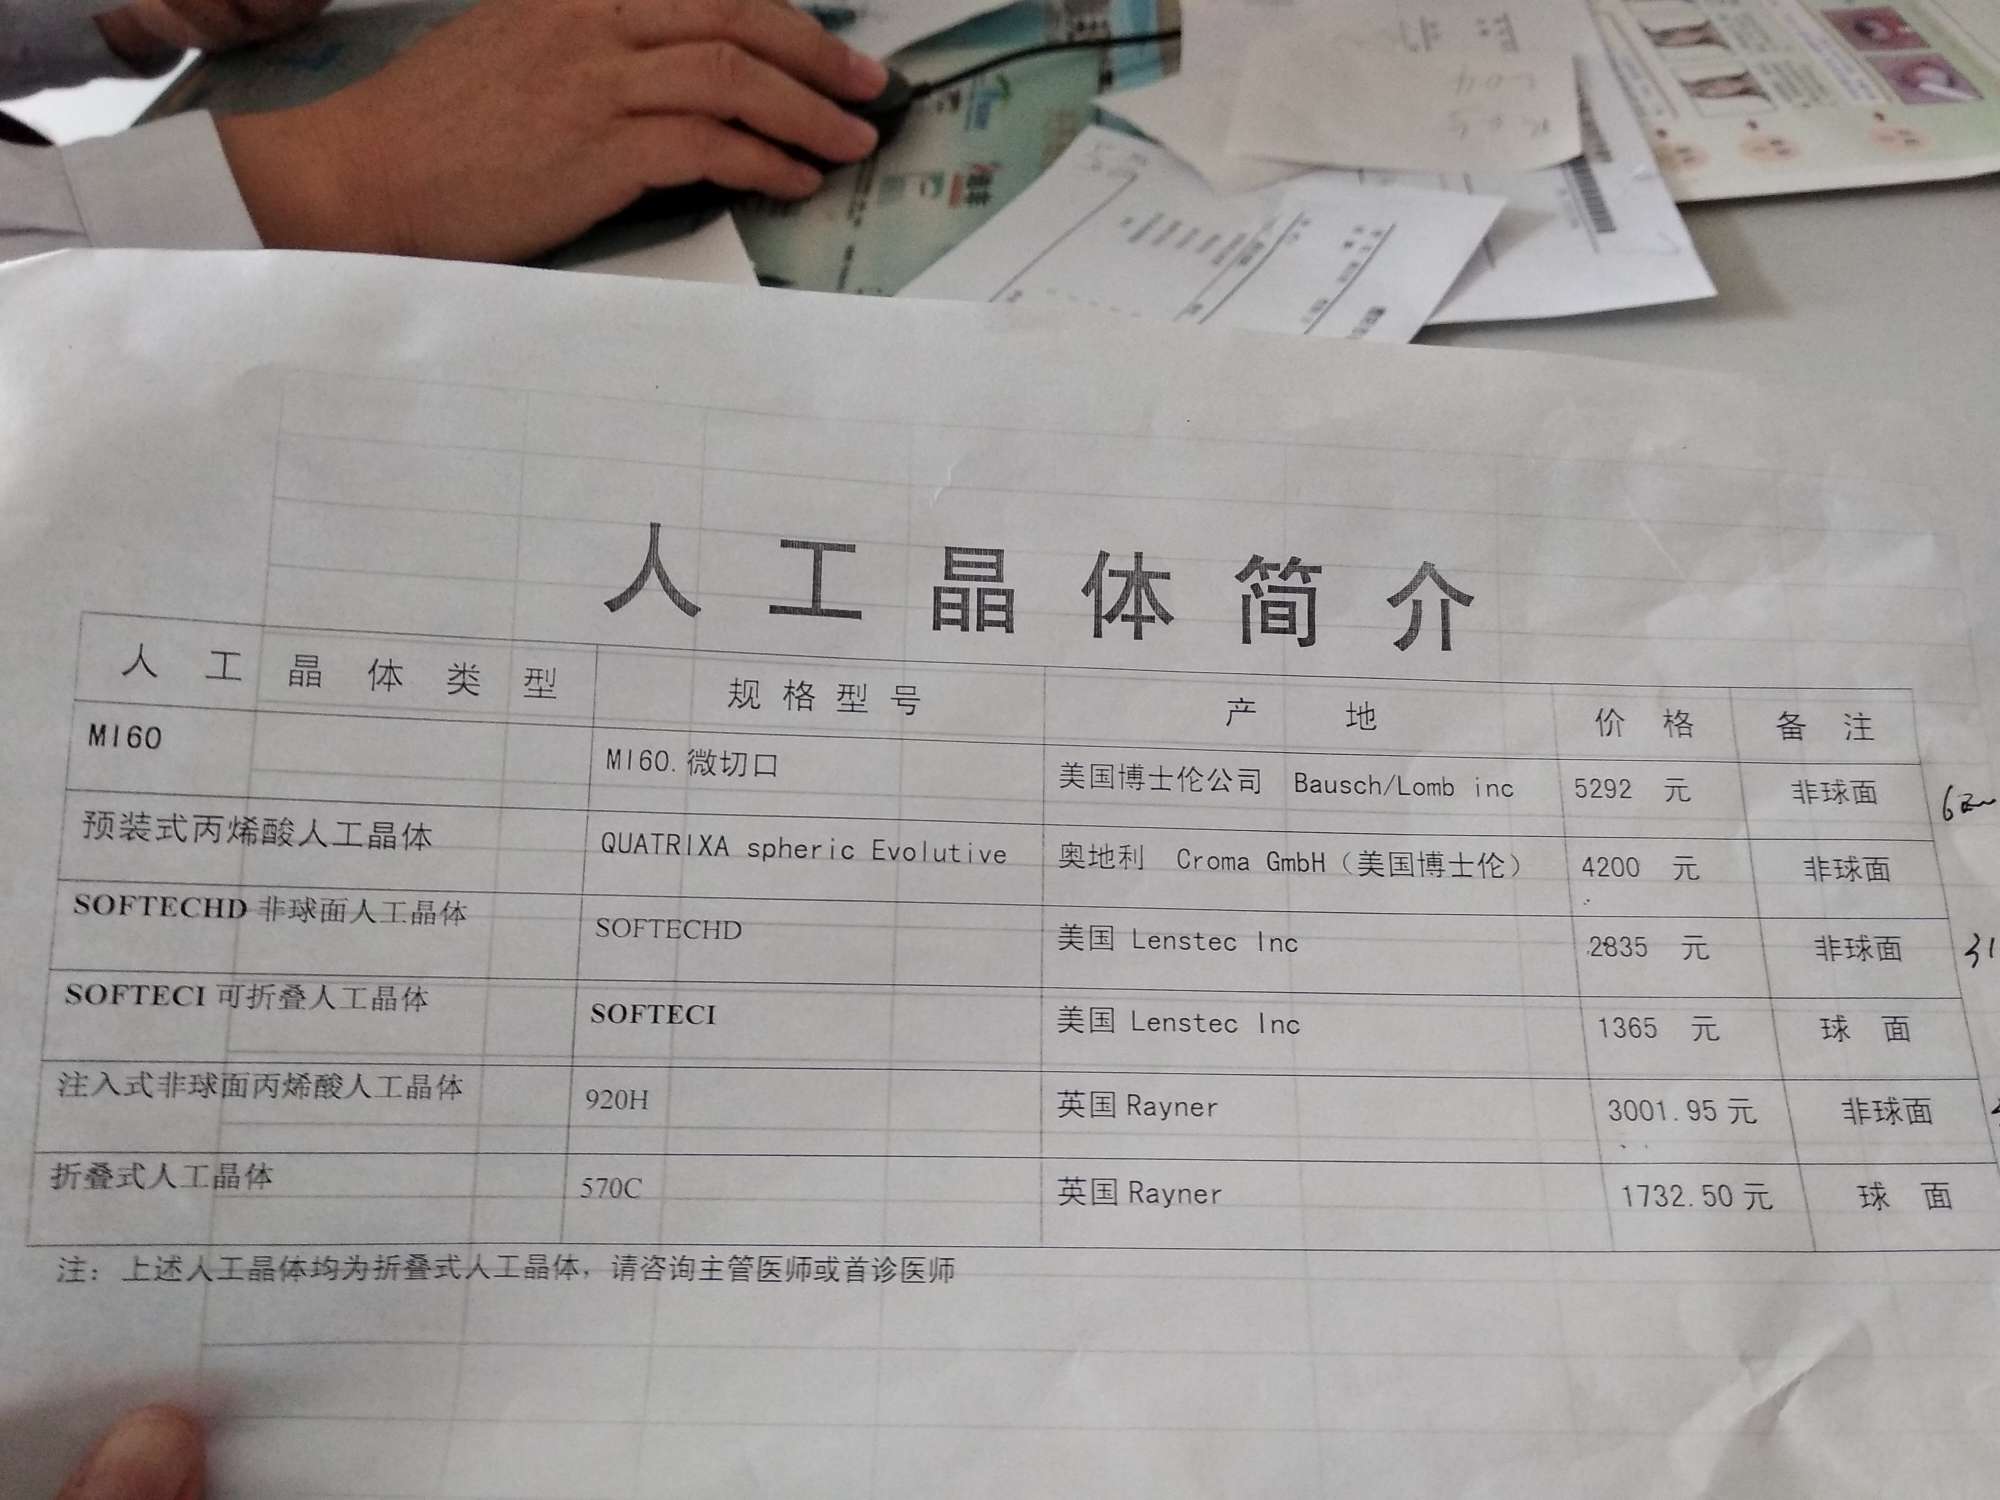 人工晶体简介
人工晶体类型 规格型号 产地 价格 备注
MI60 MI60.微切口 美国博士伦公司 Bausch/Lomb inc 5292 元 非球面
预装式丙烯酸人工晶体 QUATRIXA spheric Evolutive 奥地利 Croma GmbH（美国博士伦） 4200 元 非球面
SOFTECHD 非球面人工晶体 SOFTECHD 美国 Lenstec Inc 2835 元 非球面 31
SOFTECI 可折叠人工晶体 SOFTECI 美国 Lenstec Inc 1365 元 球 面
注入式非球面丙烯酸人工晶体 920H 英国 Rayner 3001.95 元 非球面
折叠式人工晶体 570C 英国 Rayner 1732.50 元 球 面
注：上述人工晶体均为折叠式人工晶体，请咨询主管医师或首诊医师